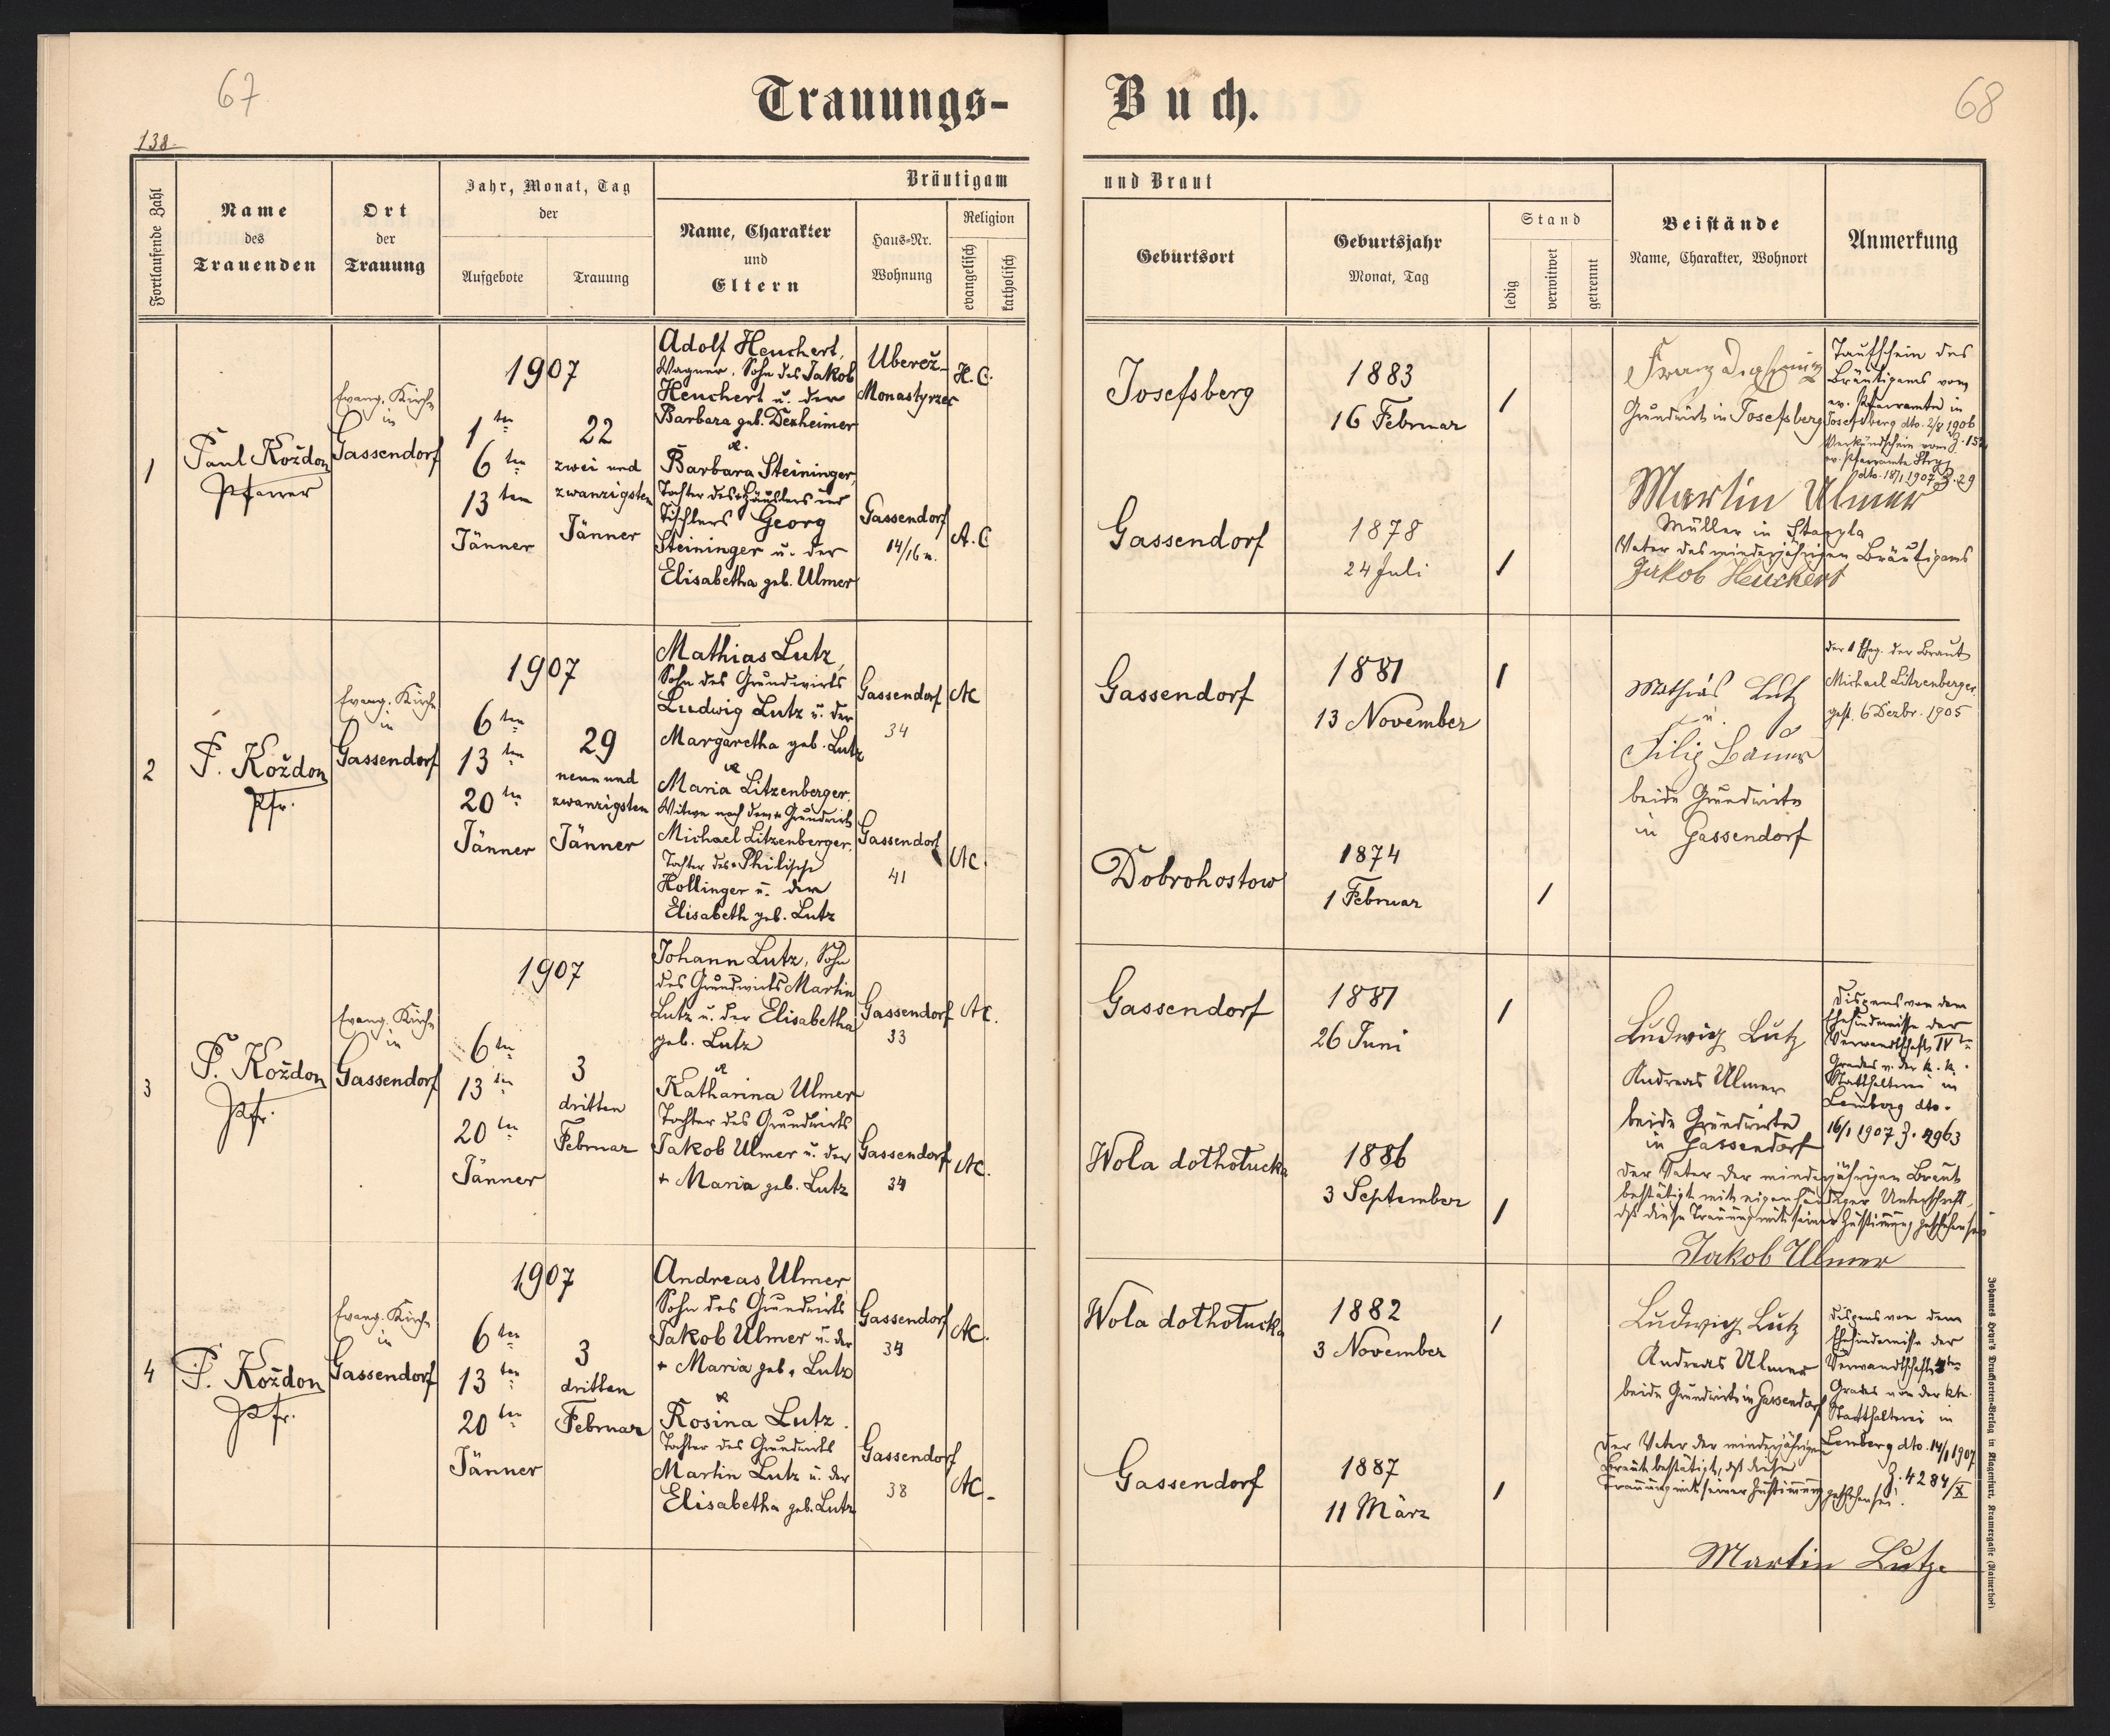 67
138.
Trauungs-
Buch.
68
Fortlaufende Zahl
Name
des
Trauenden
Ort
der
Trauung
Jahr, Monat, Tag
der
Aufgebote
Trauung
Bräutigam
und Braut
Name, Charakter
und
Eltern
Haus-Nr.
Wohnung
Religion
evangelisch
katholisch
Geburtsort
Geburtsjahr
Monat, Tag
Stand
ledig
verwitwet
getrennt
Beistände
Name, Charakter, Wohnort
Anmerkung
1
Paul Koždon
Pfarrer
Evang. Kirche
in
Gassendorf
1907
1ten
6ten
13ten
Jänner
22
zwei und
zwanzigsten
Jänner
Adolf Heuchert,
Wagner, Sohn des Jakob
Heuchert u. der
Barbara geb. Dexheimer
&
Barbara Steininger,
Tochter des Häuslers und
Tischlers Georg
Steininger u. der
Elisabetha geb. Ulmer
Uberež-
Monastyrzec
Gassendorf
14/16 n.
H. C.
A. C
Josefsberg
Gassendorf
1883
16 Februar
1878
24 Juli
1
1
Franz
Grundwirt in Josefsberg
Martin Ulmer
Müller in
Vater des minderjährigen Bräutigams
Jakob Heuchert
Taufschein des
Bräutigams vom
ev. Pfarramte in
Josefsberg dto. 2/8 1906
Z. 152
Verkündschein vom
ev. Pfarramte Stryj
dto. 18/1 1907 Z. 29
2
P. Koždon
Pfr.
Evang. Kirche
in
Gassendorf
1907
6ten
13ten
20ten
Jänner
29
neun und
zwanzigsten
Jänner
Mathias Lutz,
Sohn des Grundwirts
Ludwig Lutz u. der
Margaretha geb. Lutz
&
Maria Litzenberger,
Witwe nach dem + Grundwirt
Michael Litzenberger,
Tochter des + Philipp
Hollinger u. der
Elisabeth geb. Lutz
Gassendorf
34
Gassendorf
41
AC
AC.
Gassendorf
Dobrohostow
1881
13 November
1874
1 Februar
1
1
Mathias Lutz
u.
Filip Bauer
beide Grundwirte
in Gassendorf
der 1 Eheg. der Braut
Michael Litzenberger
gest. 6 Dezbr. 1905
3
P. Koždon
Pfr.
Evang. Kirche
in
Gassendorf
1907
6ten
13ten
20ten
Jänner
3
dritten
Februar
Johann Lutz, Sohn
des Grundwirts Martin
Lutz u. der Elisabetha
geb. Lutz
&
Katharina Ulmer
Tochter des Grundwirts
Jakob Ulmer u. der
+ Maria geb. Lutz
Gassendorf
33
Gassendorf
34
AC.
AC.
Gassendorf
Wola dothołucka
1881
26 Juni
1886
3 September
1
1
Ludwig Lutz
Andreas Ulmer
beide Grundwirte
in Gassendorf
Der Vater der minderjährigen Braut
bestätigt mit eigenhändiger Unterschrift,
dß diese Trauung mit seiner Zustimmung geschehen sei
Jakob Ulmer
Dispens von dem
Ehehindernisse der
Verwandtschaft IVten
Grades v. der k. k.
Statthalterei in
Lemberg dto.
16/1 1907 Z. 4963
4
P. Koždon
Pfr.
Evang. Kirche
in
Gassendorf
1907
6ten
13ten
20ten
Jänner
3
dritten
Februar
Andreas Ulmer
Sohn des Grundwirts
Jakob Ulmer u. der
+ Maria geb. Lutz
&
Rosina Lutz.
Tochter des Grundwirts
Martin Lutz u. der
Elisabetha geb. Lutz
Gassendorf
34
Gassendorf
38
AC.
AC.
Wola dothołucka
Gassendorf
1882
3 November
1887
11 März
1
1
Ludwig Lutz
Andreas Ulmer
beide Grundwirte in Gassendorf
Der Vater der minderjährigen
Braut bestätigt, dß diese
Trauung mit seiner Zustimmung geschehen sei.
Martin Lutz.
Dispens von dem
Ehehindernisse der
Verwandtschaft 4ten
Grades von der kk.
Statthalterei in
Lemberg dto. 14/1 1907
Z. 4284/X
Johannes Heyn's Drucksorten-Verlag in Klagenfurt, Kramergasse (Rainerhof)